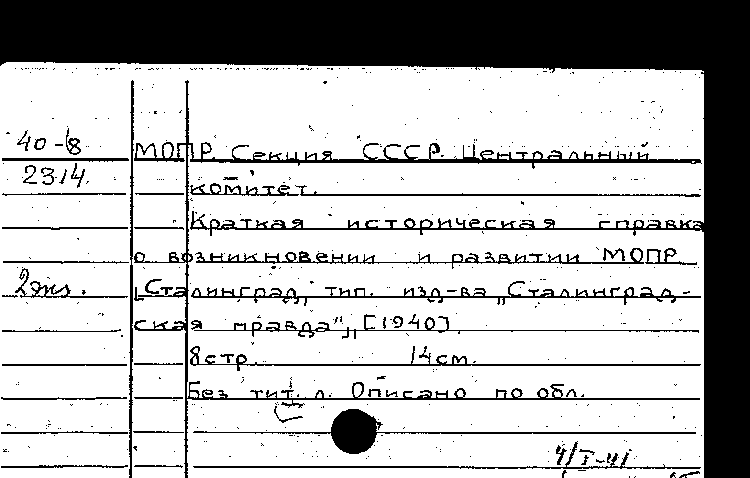 40-8 МОПР. Секция СССР. Центральный
2314. комитет.
Краткая историческая справка
о возникновении и развитии МОПР
2 экз. [Сталинград, тип. изд-ва „Сталинград-
ская правда", [1940].
8 стр. 14 см.
Без тит. л. Описано по обл.
4/I-41